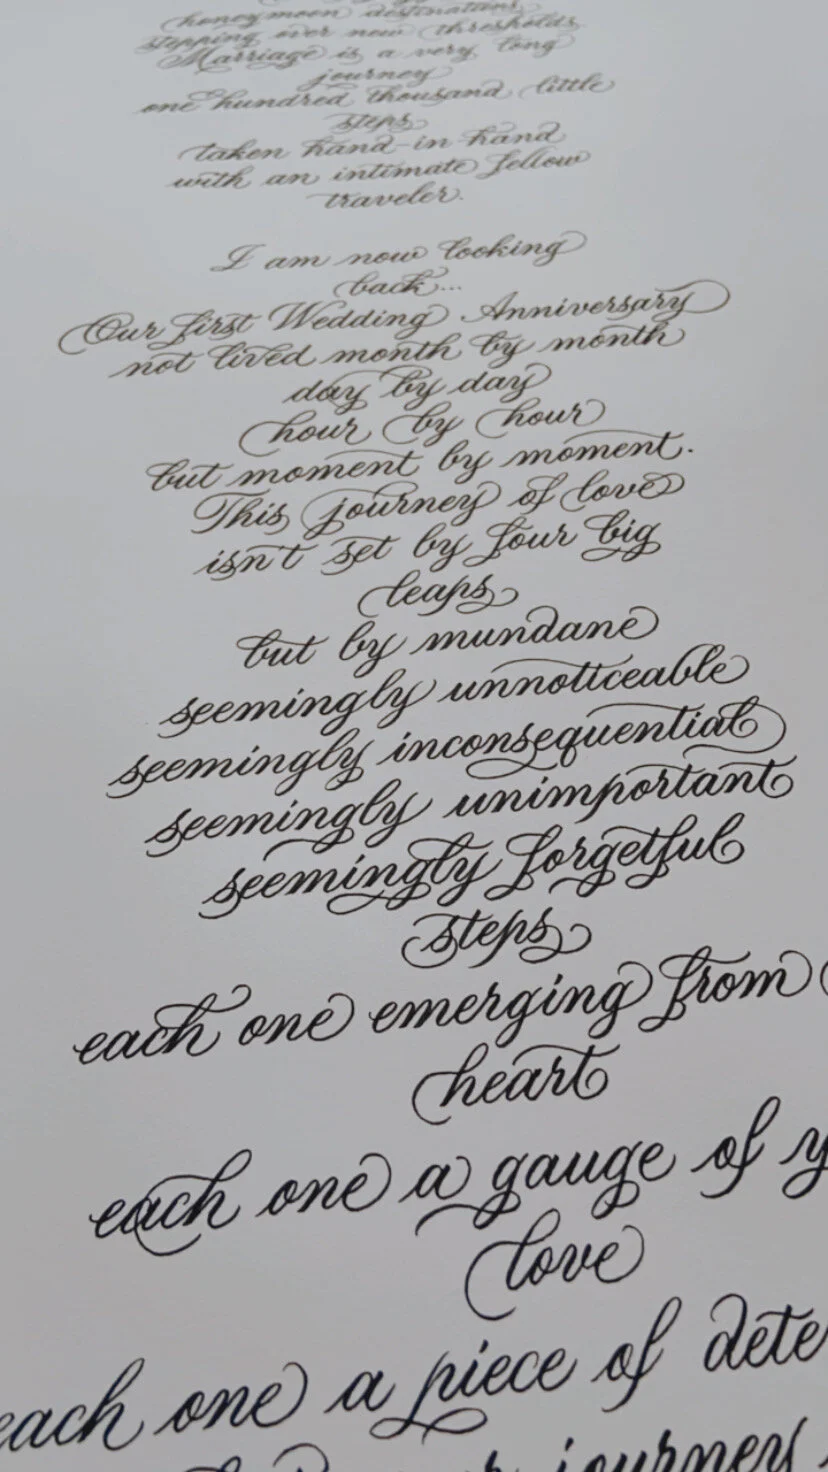 honeymoon destinations
stepping over new thresholds
Marriage is a very long
journey
one hundred thousand little
steps
taken hand-in-hand
with an intimate fellow
traveler.
I am now looking
back...
Our first Wedding Anniversary
not lived month by month
day by day
hour by hour
but moment by moment.
This journey of love
isn't set by four big
leaps
but by mundane
seemingly unnoticeable
seemingly inconsequential
seemingly unimportant
seemingly forgetful
steps
each one emerging from
heart
each one a gauge of
love
each one a piece of
journey